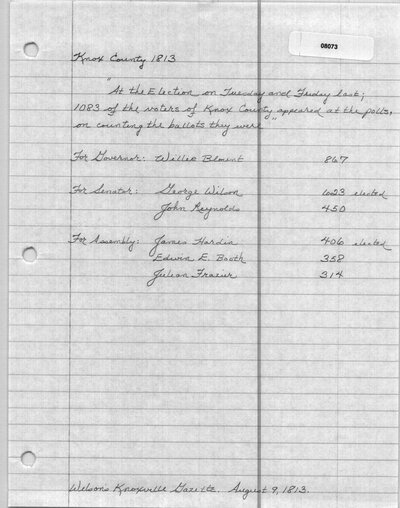 08073
Knox County 1813
"At the Election on Tuesday and Friday last;
1083 of the voters of Knox County appeared at the polls,
on counting the ballots they were"
For Governor: Willie Blount 867
For Senator: George Wilson 623 elected
John Reynolds 450
For Assembly: James Hardin 406 elected
Edwin E. Booth 358
Julian Frazier 314
Wilson's Knoxville Gazette. August 9, 1813.